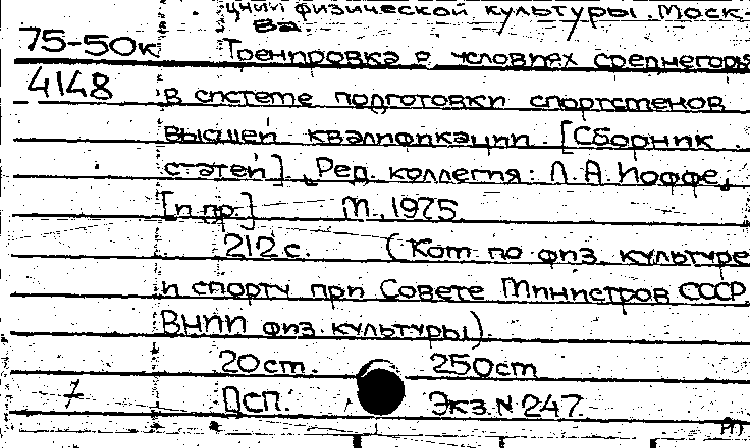 ций физической культуры. Моск-
ва.
75-50к Тренировка в условиях среднегорья
4148 в системе подготовки спортсменов
высшей квалификации. [Сборник
статей]. Ред. коллегия: Л.А. Иоффе,
[и др.] М., 1975.
212 с. (Ком. по физ. культуре
и спорту при Совете Министров СССР
ВНИИ физ. культуры).
20 см. 250 ст
7 ДСП. Экз. N 247.
m